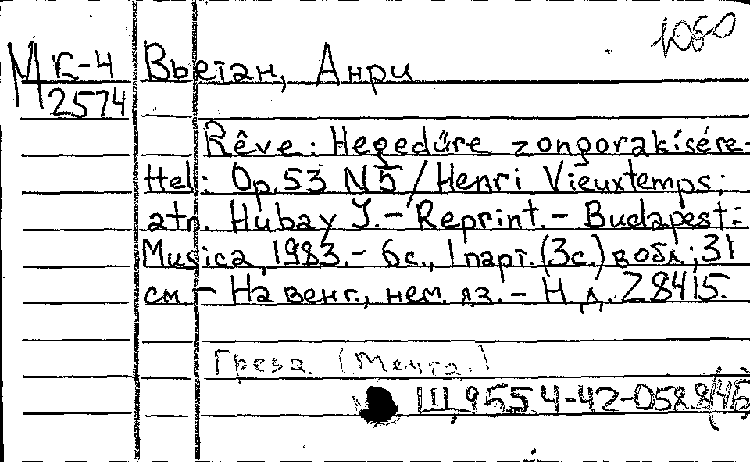 1050
М Г-4
2574
Вьетан, Анри
Rêve: Hegedűre zongorakísére-
ttel: Op. 53 N 5 / Henri Vieuxtemps;
átn. Hubay J. - Reprint. - Budapest:
Musica, 1983. - 6 с., 1 парт. (3 с.) в обл.; 31
см. - На венг., нем. яз. - Н. д. Z 8415.
Греза. (Мечта.)
Ш, 955.4-42-058.8(45)